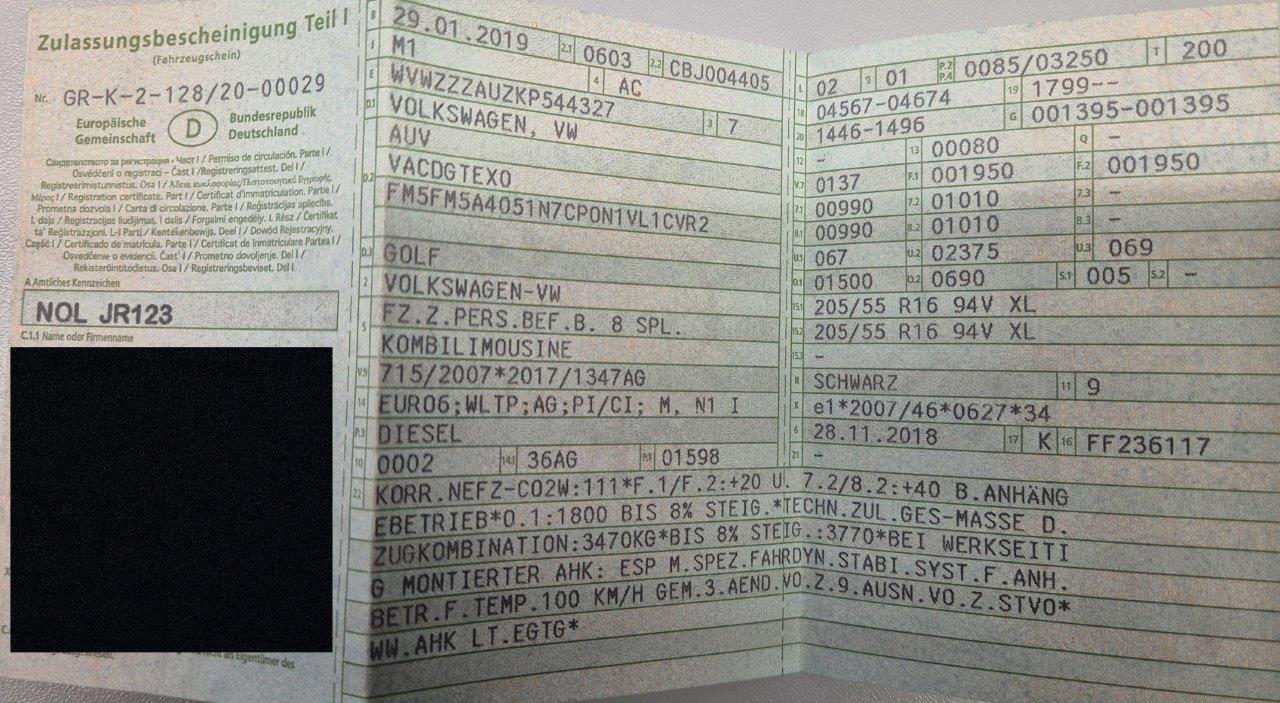 Zulassungsbescheinigung Teil I
(Fahrzeugschein)
Nr. GR-K-2-128/20-00029
Europäische Gemeinschaft
D
Bundesrepublik Deutschland
Свидетелство за регистрация - Част I / Permiso de circulación. Parte I /
Osvědčení o registraci – Část I / Registreringsattest. Del I /
Registreerimistunnistus. Osa I / Άδεια κυκλοφορίας/Πιστοποιητικό Εγγραφής.
Μέρος I / Registration certificate. Part I / Certificat d'immatriculation. Partie I /
Prometna dozvola I / Carta di circolazione. Parte I / Reģistrācijas apliecība.
I. daļa / Registracijos liudijimas. I dalis / Forgalmi engedély. I. Rész / Ċertifikat
ta' Reġistrazzjoni. L-I Parti / Kentekenbewijs. Deel I / Dowód Rejestracyjny.
Część I / Certificado de matrícula. Parte I / Certificat de înmatriculare Partea I /
Osvedčenie o evidencii. Časť I / Prometno dovoljenje. Del I /
Rekisteröintitodistus. Osa I / Registreringsbeviset. Del I
A Amtliches Kennzeichen
NOL JR123
C.1.1 Name oder Firmenname
als Eigentümer des
B 29.01.2019 2.1 0603 2.2 CBJ004405
J M1 4 AC
E WVWZZZAUZKP544327 3 7
D.1 VOLKSWAGEN, VW
AUV
D.2 VACDGTEX0
FM5FM5A4051N7CPON1VL1CVR2
D.3 GOLF
2 VOLKSWAGEN-VW
5 FZ.Z.PERS.BEF.B. 8 SPL.
KOMBILIMOUSINE
V.9 715/2007*2017/1347AG
14 EURO6;WLTP;AG;PI/CI; M, N1 I
P.3 DIESEL
10 0002 14.1 36AG P.1 01598
L 02 9 01 P.2 P.4 0085/03250 T 200
18 04567-04674 19 1799--
20 1446-1496 G 001395-001395
12 - 13 00080 Q -
V.7 0137 F.1 001950 F.2 001950
7.1 00990 7.2 01010 7.3 -
8.1 00990 8.2 01010 8.3 -
U.1 067 U.2 02375 U.3 069
O.1 01500 O.2 0690 S.1 005 S.2 -
15.1 205/55 R16 94V XL
15.2 205/55 R16 94V XL
15.3 -
R SCHWARZ 11 9
K e1*2007/46*0627*34
6 28.11.2018 17 K 16 FF236117
21 -
22 KORR.NEFZ-CO2W:111*F.1/F.2:+20 U. 7.2/8.2:+40 B.ANHÄNG
EBETRIEB*O.1:1800 BIS 8% STEIG.*TECHN.ZUL.GES-MASSE D.
ZUGKOMBINATION:3470KG*BIS 8% STEIG.:3770*BEI WERKSEITI
G MONTIERTER AHK: ESP M.SPEZ.FAHRDYN.STABI.SYST.F.ANH.
BETR.F.TEMP.100 KM/H GEM.3.AEND.VO.Z.9.AUSN.VO.Z.STVO*
WW.AHK LT.EGTG*